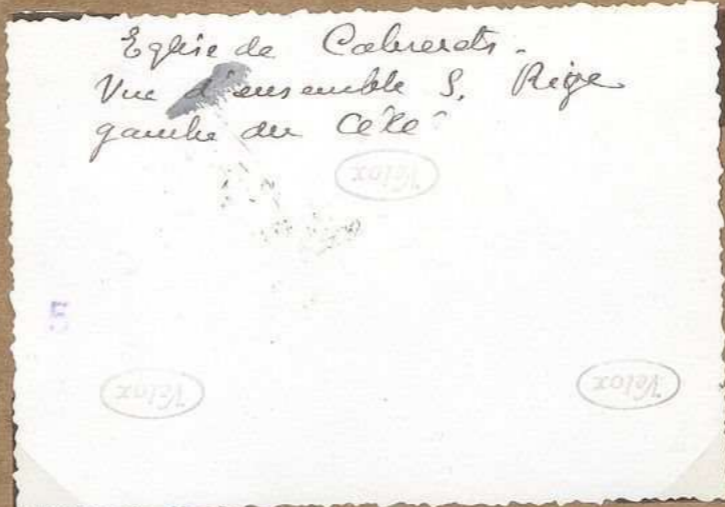 Eglise de Cabrerets.
Vue d'ensemble S. Rive
gauche du Célé
Velox
Velox
Velox